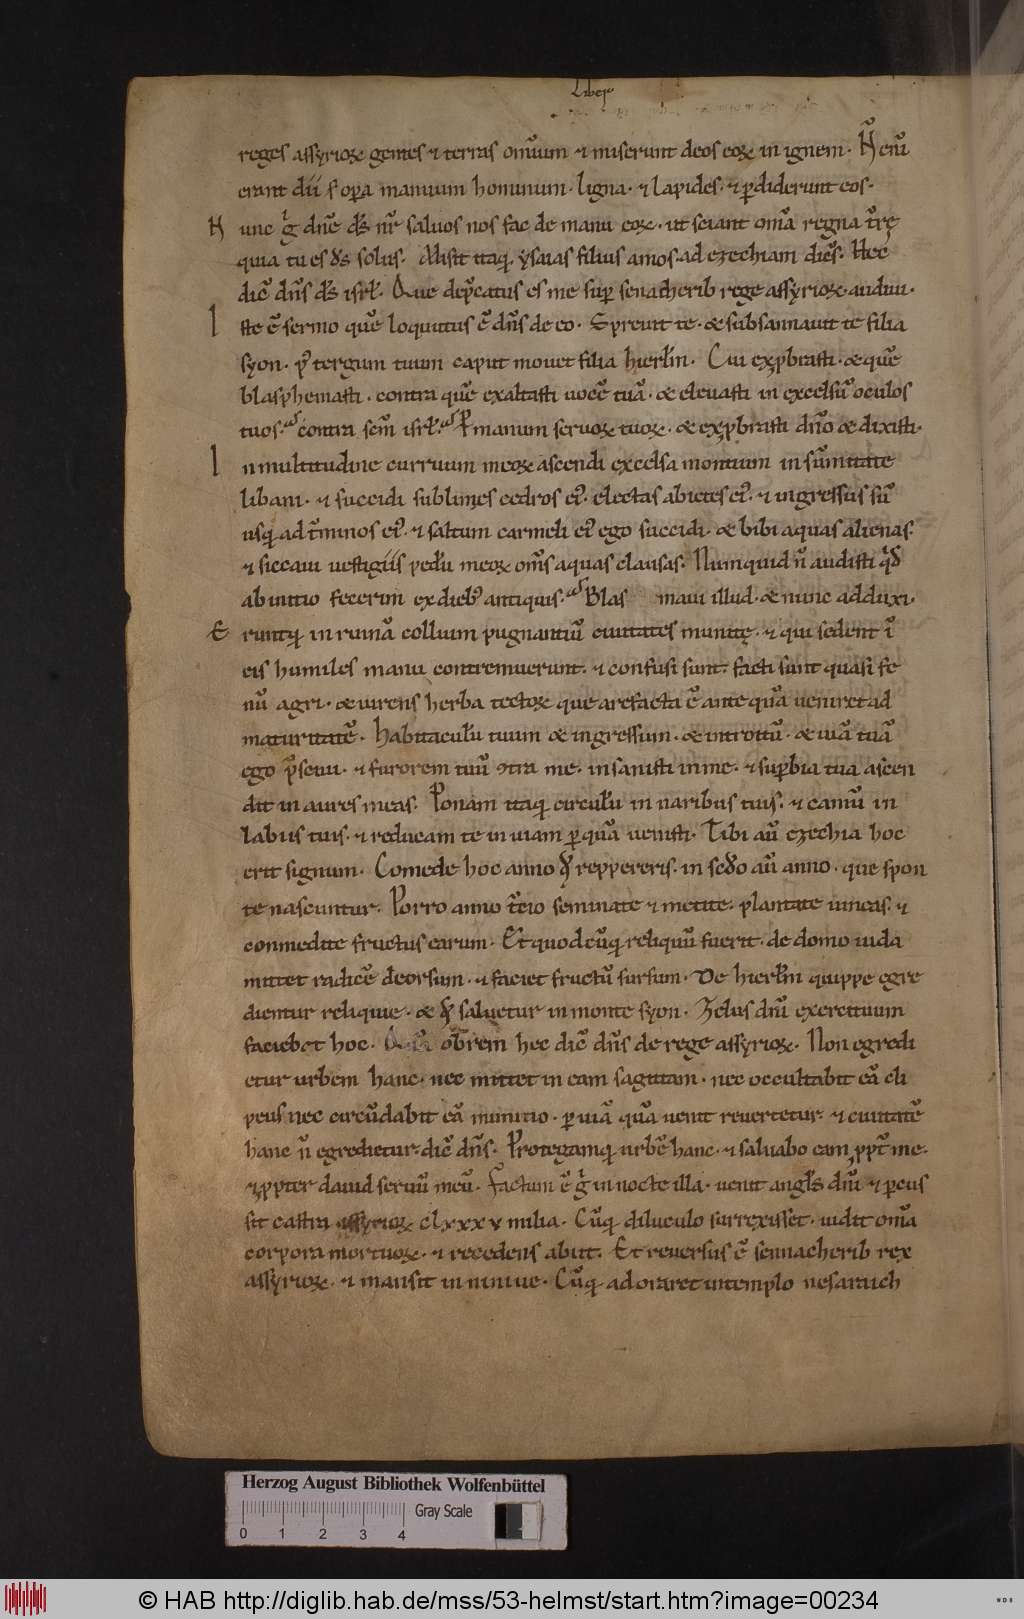 Liber
reges assyrioꝝ gentes ⁊ terras om̅ium ⁊ miserunt deos eoꝝ in ignem. N̅ eni̅
erant dii s̅ op̲a manuum hominum. ligna. ⁊ lapides. ⁊ p̲diderunt eos.
N unc g̊ dn̅e ds̅ nr̅ saluos nos fac de manu eoꝝ. ut sciant om̅a regna t̅rę
quia tu es ds̅ solus. Misit itaq; ysaias filius amos. ad ezechiam dic̅s. Hec
dic̅ dn̅s ds̅ isrl̅. Que dep̅catus es me sup̲ senacherib rege assyrioꝝ. audiui.
I ste e̅ sermo que̅ loquutus e̅ dn̅s de eo. Spreuit te. & subsannauit te filia
syon. p᷒ tergum tuum caput mouet filia hierl̅m. Cui exp̲brasti. & que̅
blasphemasti. contra que̅ exaltasti uoce̅ tua̅. & eleuasti in excelsu̅ oculos
tuos. contra sc̅m isrl̅. P̲ manum seruoꝝ tuoꝝ. & exp̲brasti dn̅o & dixisti.
I n multitudine curruum meoꝝ ascendi excelsa montium in su̅mitate
libani. ⁊ succidi sublimes cedros ei᷒. electas abietes ei᷒. ⁊ ingressus su̅
usq; ad t̅minos ei᷒. ⁊ saltum carmeli ei᷒ ego succidi. & bibi aquas alienas.
⁊ siccaui uestigiis pedu̅ meoꝝ om̅s aquas clausas. Numquid n̅ audisti qd̅
ab initio fecerim ex dieb᷒ antiquis. Plas maui illud. & nunc adduxi.
E runtq; in ruina̅ collium pugnantiu̅ ciuitates munitę. ⁊ qui sedent i̅
eis humiles manu contremuerunt. ⁊ confusi sunt. facti sunt quasi fe
nu̅ agri. & uirens herba tectoꝝ que arefacta e̅ ante qua̅ ueniret ad
maturitate̅. Habitaculu̅ tuum & ingressum. & introitu̅. & uia̅ tua̅
ego p̅sciui. ⁊ furorem tuu̅ ꝯtra me. insanisti in me. ⁊ sup̲bia tua ascen
dit in aures meas. Ponam itaq; circulu̅ in naribus tuis. ⁊ camu̅ in
labiis tuis. ⁊ reducam te in uiam p̲ qua̅ uenisti. Tibi au̅ ezechia hoc
erit signum. Comede hoc anno qd̅ reppereris. in sc̅do au̅ anno. que spon
te nascuntur. Porro anno t̅cio seminate ⁊ metite. plantate uineas. ⁊
conmedite fructus earum. Et quodcu̅q; reliquu̅ fuerit. de domo iuda
mittet radice̅ deorsum. ⁊ faciet fructu̅ sursum. De hierl̅m quippe egre
dientur reliquie. & qd̅ saluetur in monte syon. Zelus dn̅i exercituum
faciebet hoc. Qua̅ ob̅rem hec dic̅ dn̅s de rege assyrioꝝ. Non egredi
etur urbem hanc. nec mittet in eam sagittam. nec occultabit ea̅ cli
peus nec circu̅dabit ea̅ munitio. p̲ uia̅ qua̅ uenit reuertetur. ⁊ ciuitate̅
hanc n̅ egredietur. dic̅ dn̅s. Protegamq; urbe̅ hanc. ⁊ saluabo eam ꝓpt̅ me.
⁊ ꝓpter dauid seruu̅ meu̅. Factum e̅ g̊ in nocte illa. uenit angl̅s dn̅i ⁊ p̲cus
sit castra assyrioꝝ clxxxv milia. Cu̅q; diluculo surrexisset. uidit om̅a
corpora mortuoꝝ. ⁊ recedens abiit. Et reuersus e̅ sennacherib rex
assyrioꝝ. ⁊ mansit in niniue. Cu̅q; adoraret in templo nesaruch
Herzog August Bibliothek Wolfenbüttel
Gray Scale
0 1 2 3 4
© HAB http://diglib.hab.de/mss/53-helmst/start.htm?image=00234